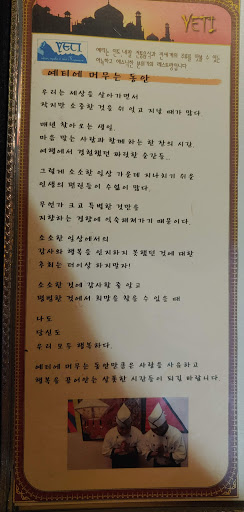 YETI
YETI
예티에 머무는 동안
우리는 세상을 살아가면서
작지만 소중한 것을 쉬 잊고 지낼 때가 많다.
매년 찾아오는 생일,
마음 맞는 사람과 함께하는 한 잔의 시간,
여행에서 경험했던 짜릿한 순간들...
그렇게 소소한 일상 가운데 지나치기 쉬운
인생의 행운들이 수없이 많다.
무언가 크고 특별한 것만을
지향하는 경향에 익숙해져가기 때문이다.
소소한 일상에서의
감사와 행복을 인지하지 못했던 것에 대한
후회는 더이상 하지말자!
소소한 것에 감사할 줄 알고
평범한 것에서 희망을 찾을 수 있을 때
나도
당신도
우리 모두 행복하다.
예티에 머무는 동안만큼은 사랑을 사유하고
행복을 끌어안는 살뜰한 시간들이 되길 바랍니다.